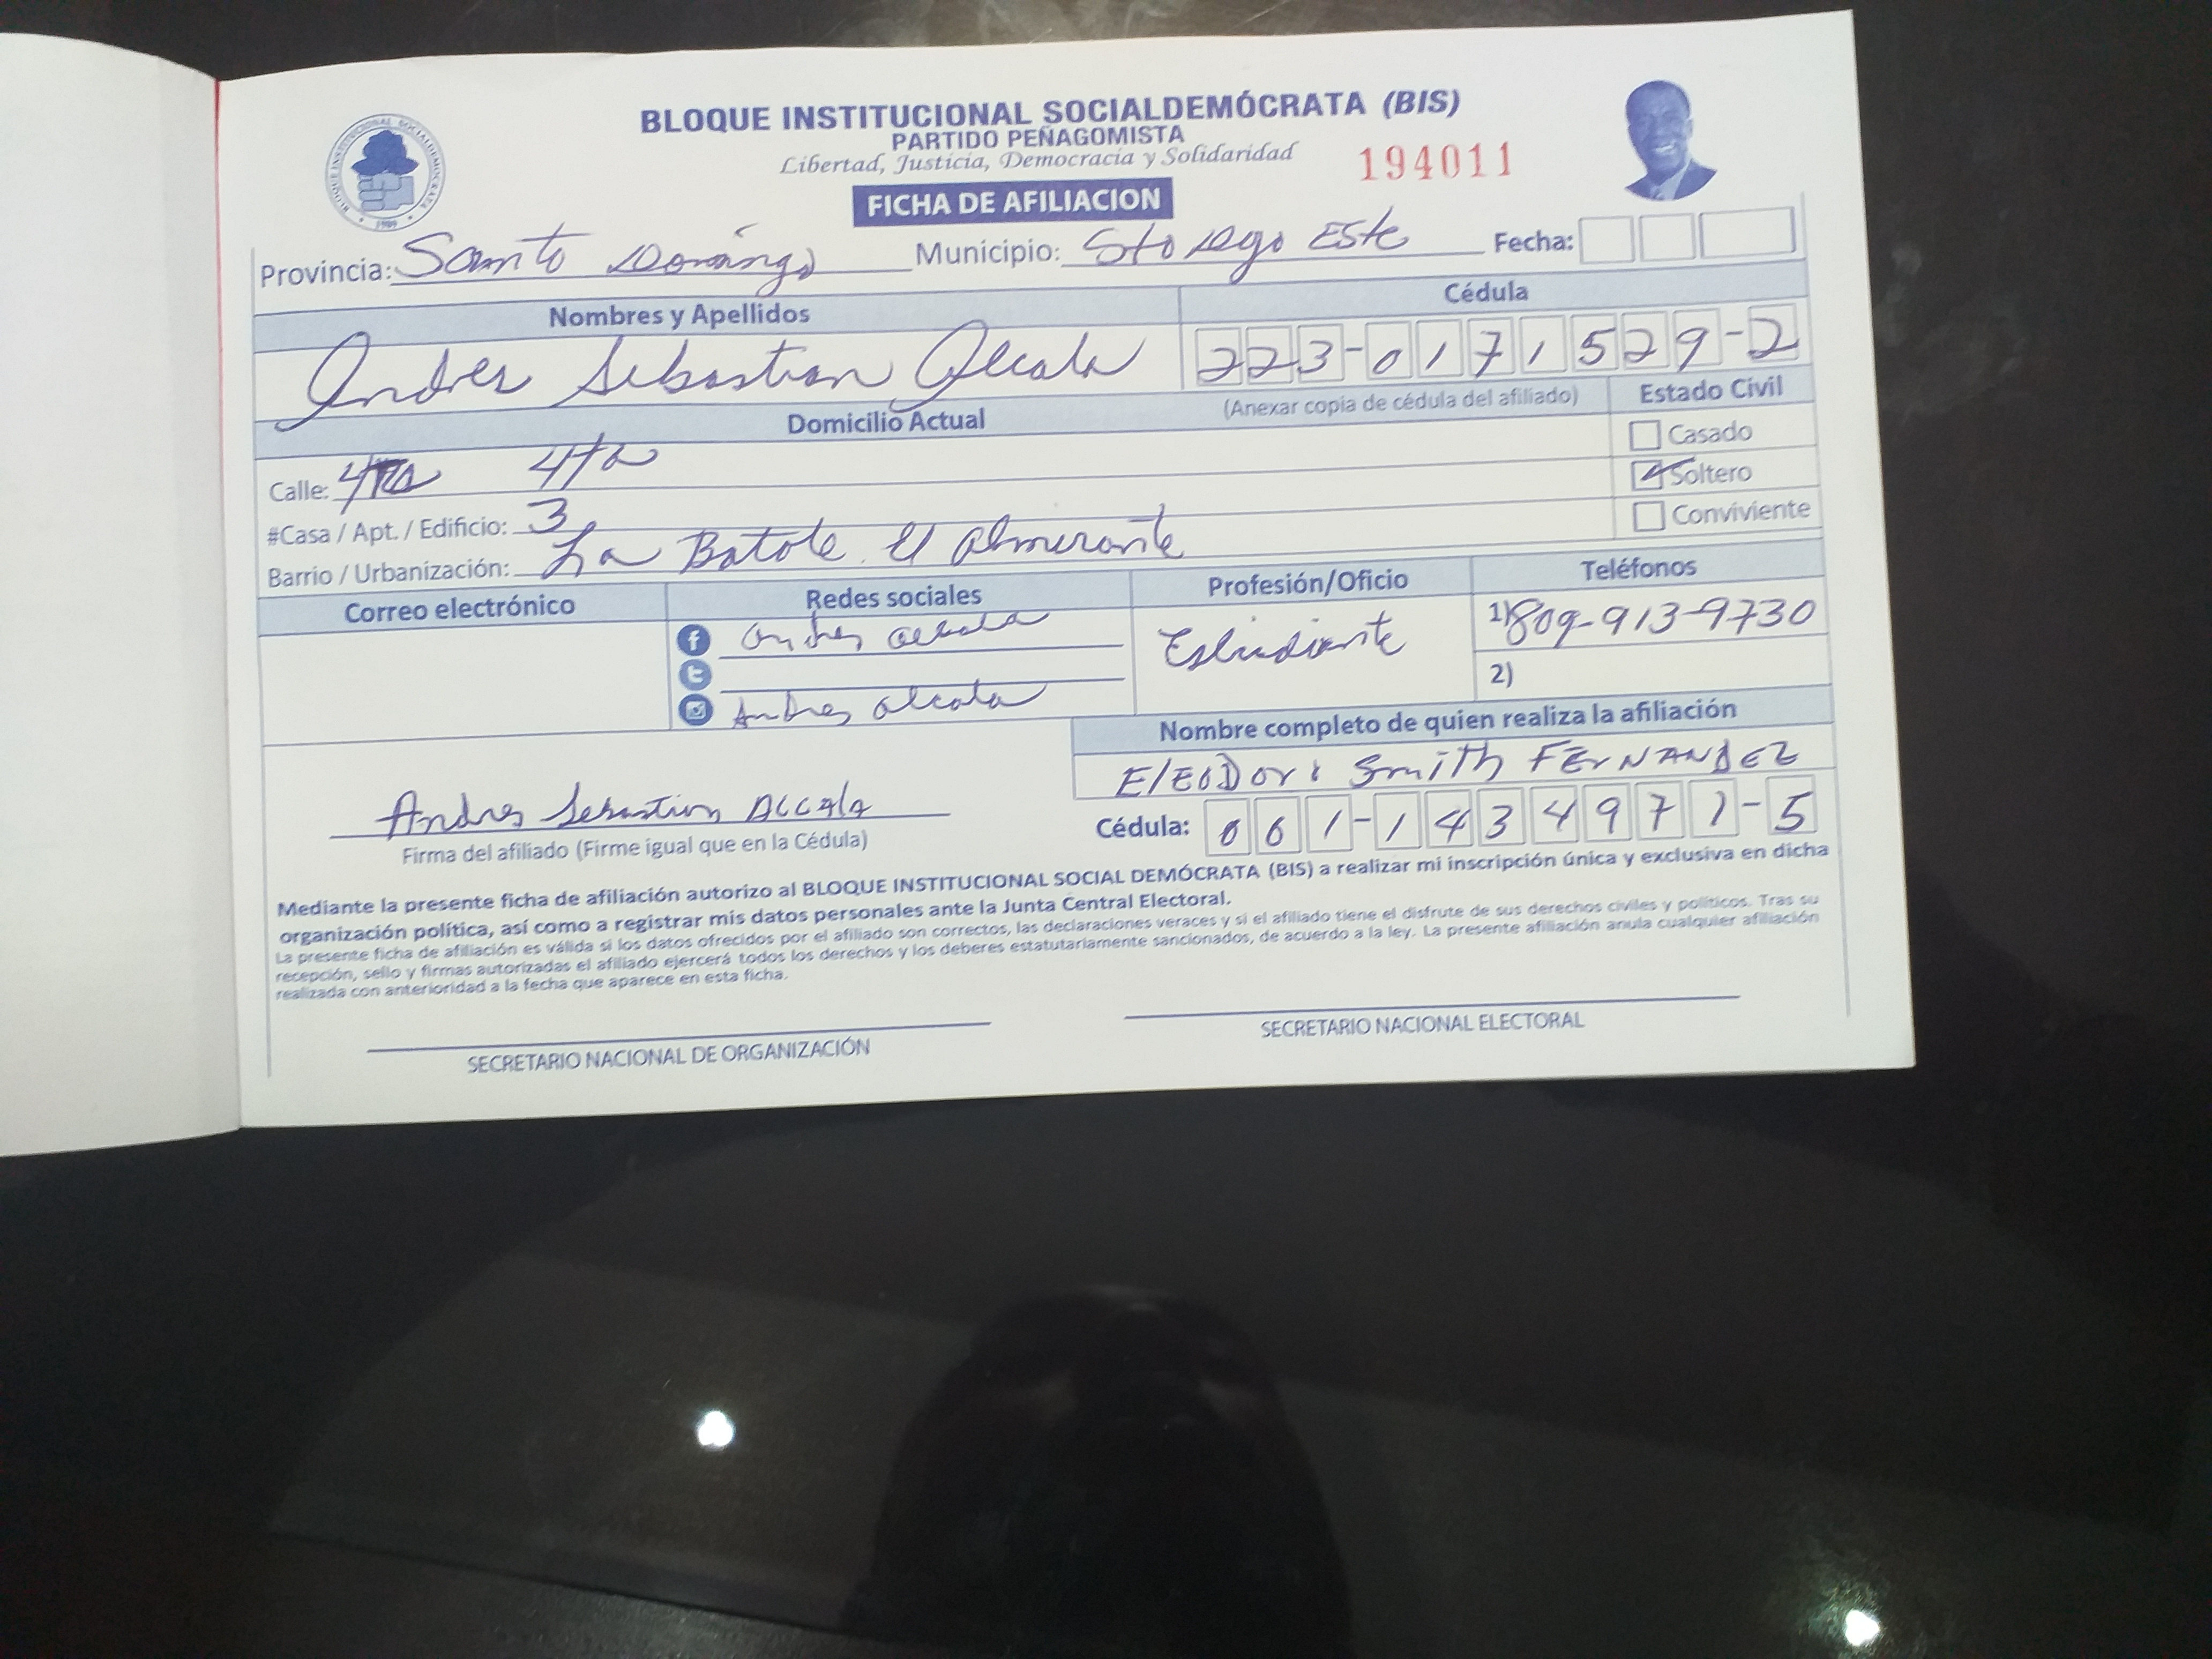 BLOQUE INSTITUCIONAL SOCIALDEMÓCRATA (BIS)
PARTIDO PEÑAGOMISTA
Libertad, Justicia, Democracia y Solidaridad
194011
BLOQUE INSTITUCIONAL SOCIALDEMOCRATA
FICHA DE AFILIACION
Provincia: Santo Domingo Municipio: Sto Dgo Este Fecha:
Nombres y Apellidos Cédula
Andres Sebastian Alcala 223-0171529-2
(Anexar copia de cédula del afiliado) Estado Civil
Domicilio Actual
Casado
Calle: 4ta
Soltero
#Casa / Apt. / Edificio: 3
Conviviente
Barrio / Urbanización: La Batote El Almerante
Correo electrónico Redes sociales Profesión/Oficio Teléfonos
f Andres alcala Estudiante 1) 809-913-9730
2)
Andres alcala
Nombre completo de quien realiza la afiliación
Smith FERNANDEZ
Andres Sebastian ALCALA
Cédula: 001-1434971-5
Firma del afiliado (Firme igual que en la Cédula)
Mediante la presente ficha de afiliación autorizo al BLOQUE INSTITUCIONAL SOCIAL DEMÓCRATA (BIS) a realizar mi inscripción única y exclusiva en dicha
organización política, así como a registrar mis datos personales ante la Junta Central Electoral.
La presente ficha de afiliación es válida si los datos ofrecidos por el afiliado son correctos, las declaraciones veraces y si el afiliado tiene el disfrute de sus derechos civiles y políticos. Tras su
recepción, sello y firmas autorizadas el afiliado ejercerá todos los derechos y los deberes estatutariamente sancionados, de acuerdo a la ley. La presente afiliación anula cualquier afiliación
realizada con anterioridad a la fecha que aparece en esta ficha.
SECRETARIO NACIONAL DE ORGANIZACIÓN
SECRETARIO NACIONAL ELECTORAL